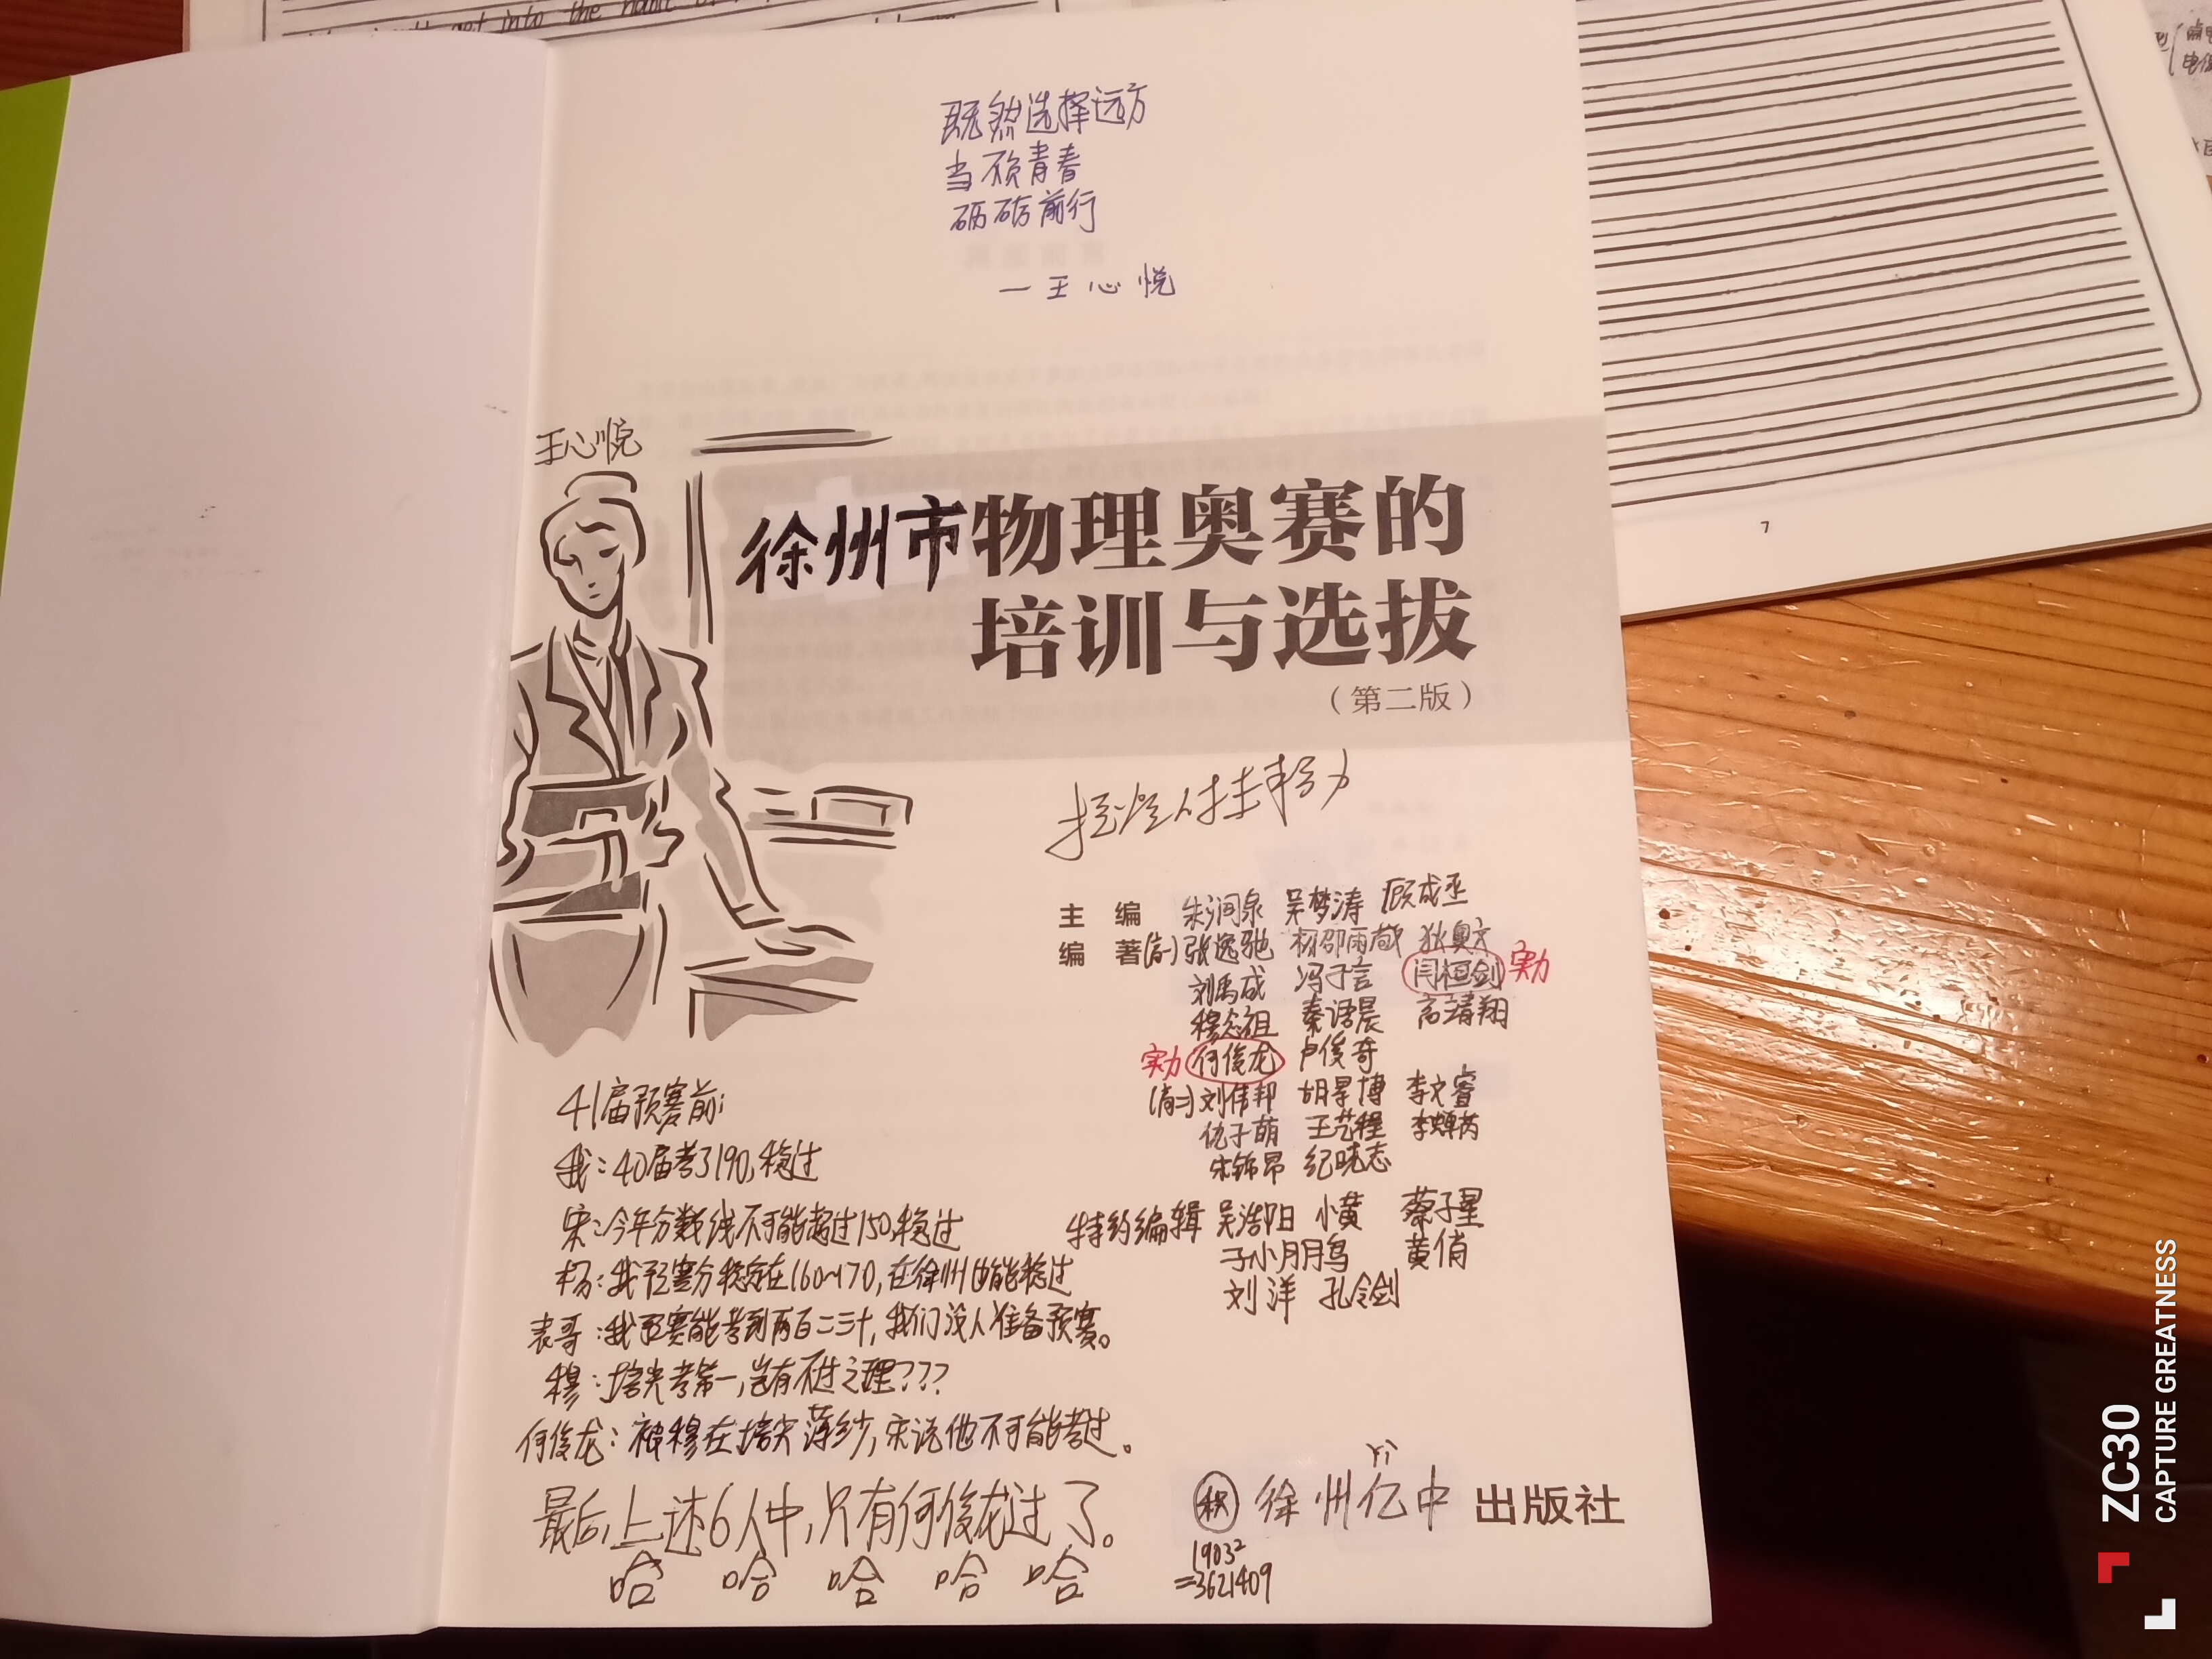 get into the habit
既然选择远方
当不负青春
砥砺前行
一王心悦
王心悦
徐州市物理奥赛的
培训与选拔
（第二版）
主 编 朱润泉 吴梦涛 顾成丕
编 著(高一) 张逸驰 杨邵雨 狄奥
刘禹成 冯子言 闫桓剑 实力
穆念祖 秦语晨 高靖翔
实力 何俊龙 卢俊奇
(高二) 刘伟邦 胡景博 李文睿
仇子萌 王艺程 李蝉芮
宋锦昂 纪晓志
特约编辑 吴浩阳 小黄 蔡子星
于小月鸟 黄俏
刘洋 孔令剑
41届预赛前：
我：40届考了190,稳过
宋：今年分数线不可能超过150,稳过
杨：我预赛分稳定在160~170,在徐州也能稳过
表哥：我预赛能考到两百二三十,我们没人准备预赛。
穆：培尖考第一,岂有不过之理???
何俊龙：被穆在培尖薄纱,宋说他不可能考过。
最后,上述6人中,只有何俊龙过了。
哈 哈 哈 哈 哈
yì
秋 徐州亿中 出版社
1903²
=3621409
7
ZC30
CAPTURE GREATNESS